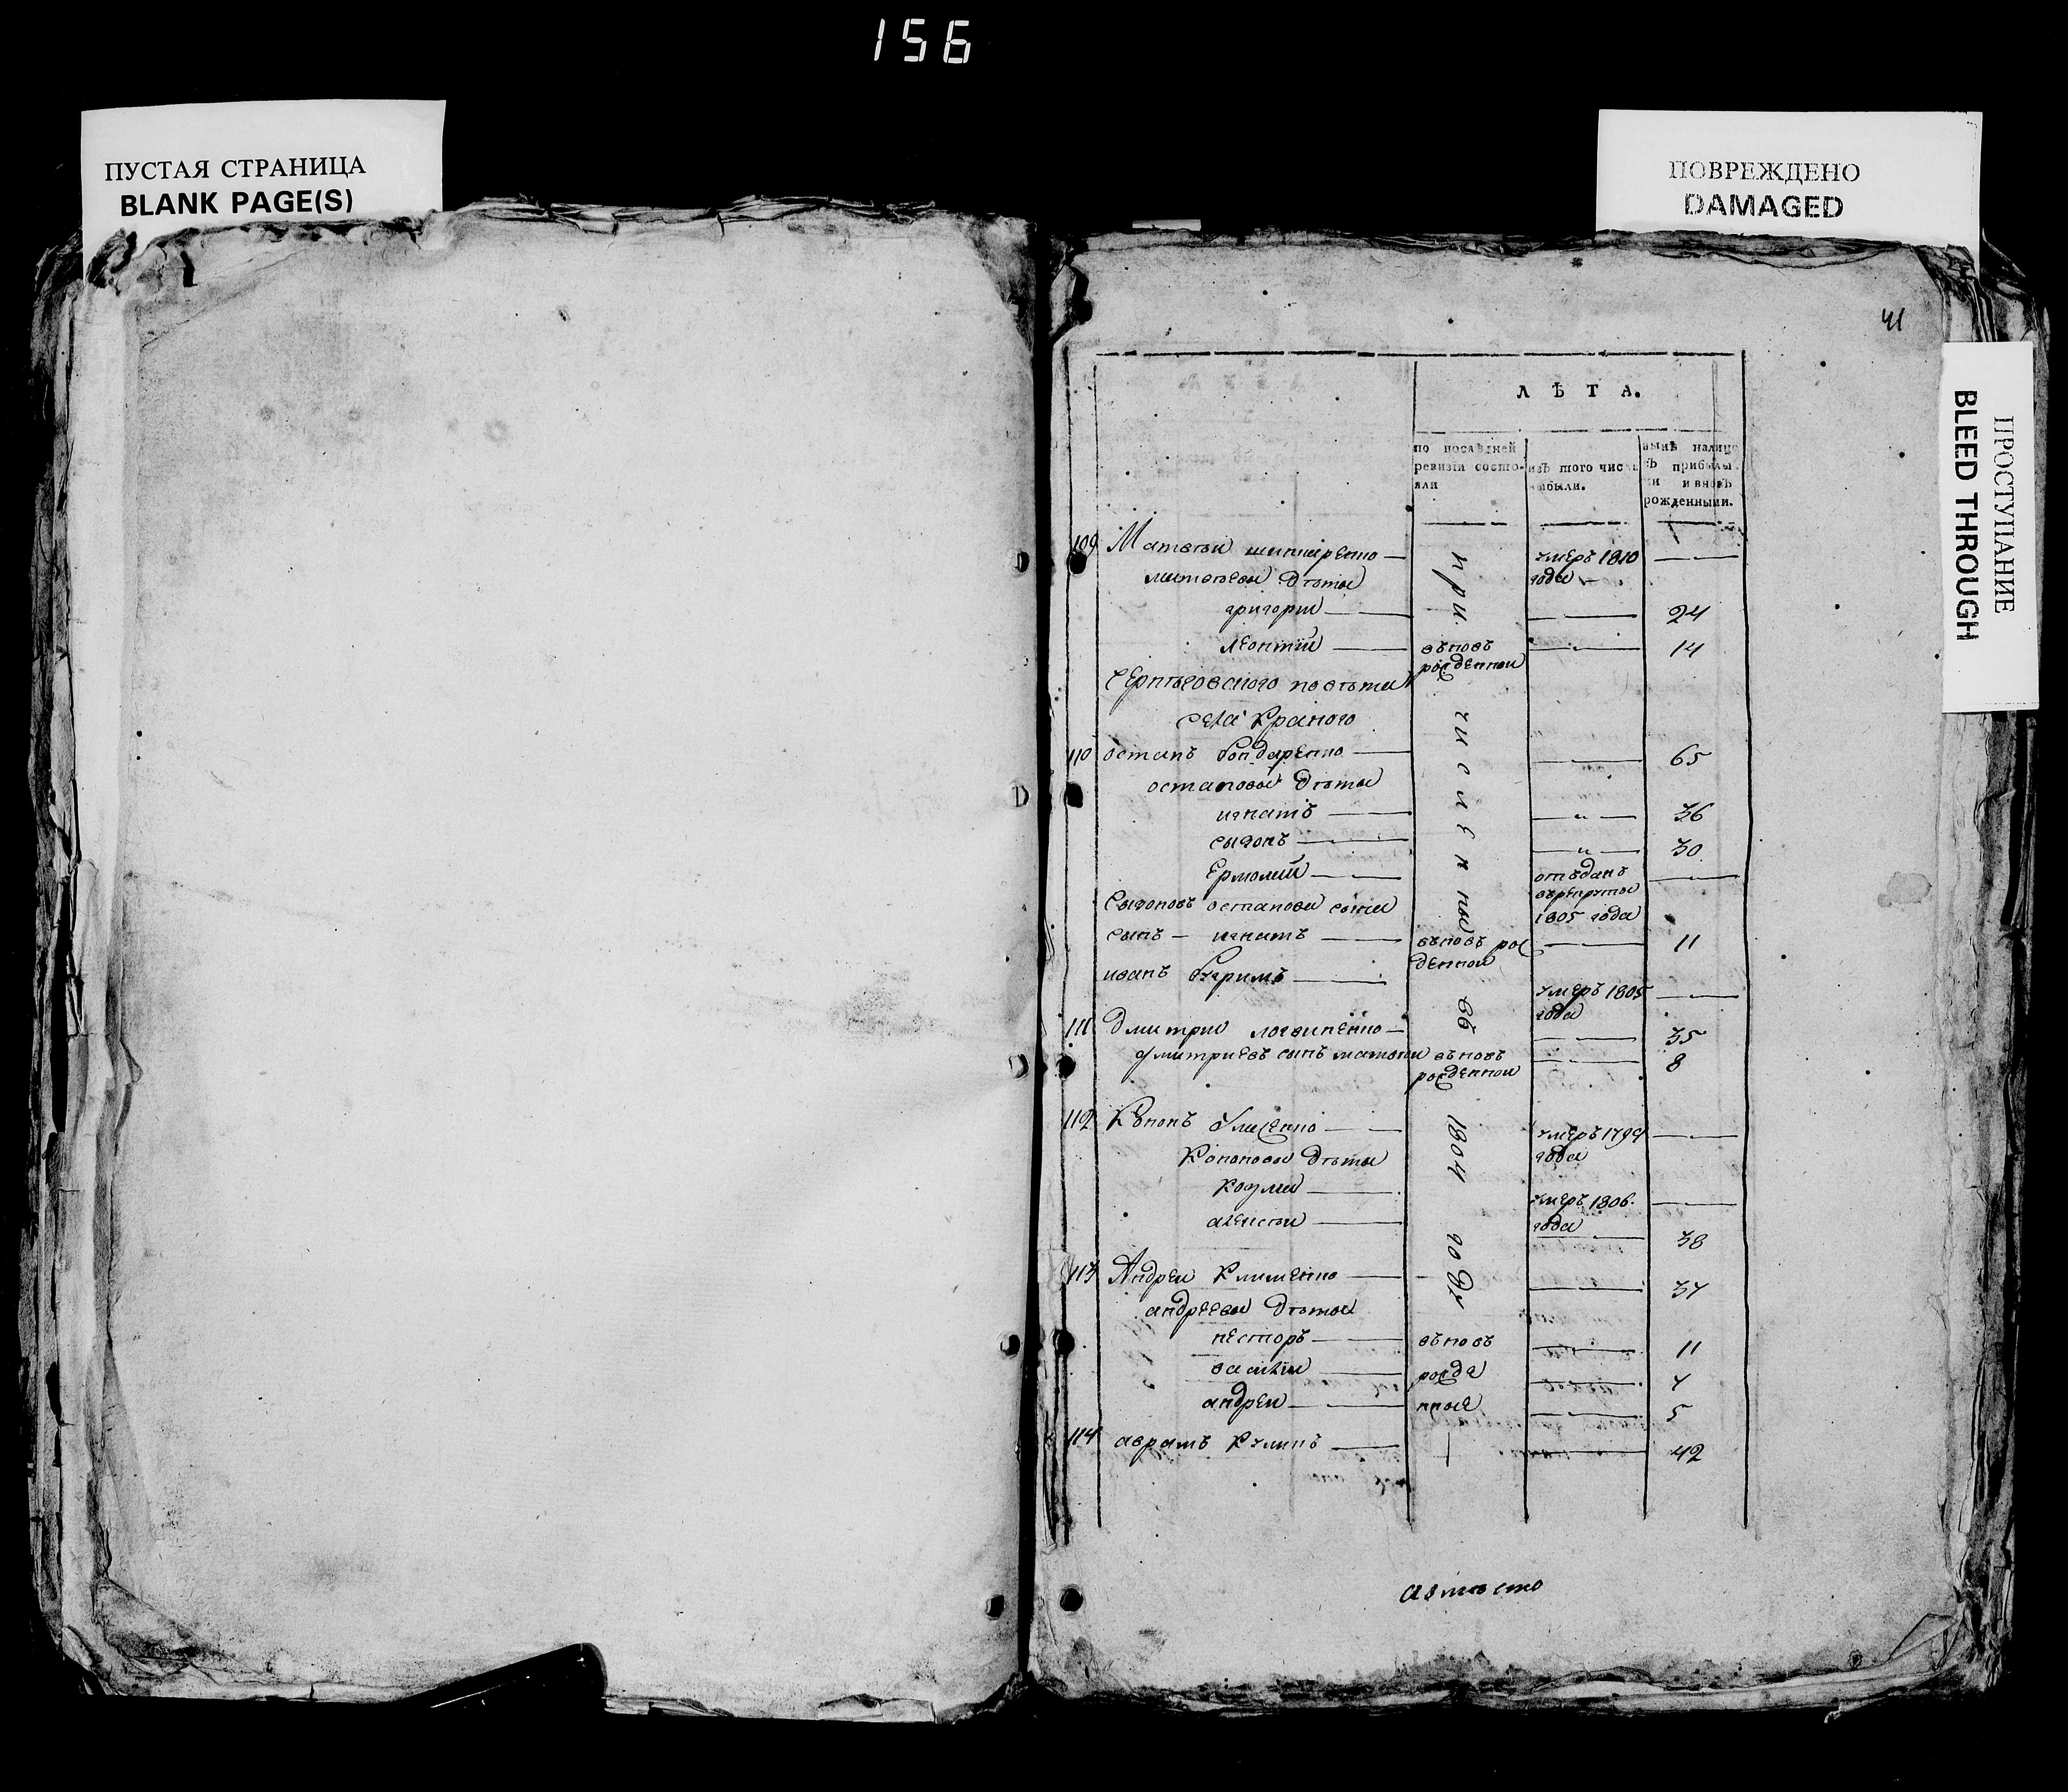 156
ПУСТАЯ СТРАНИЦА
BLANK PAGE(S)
ПОВРЕЖДЕНО
DAMAGED
ПРОСТУПАНИЕ
BLED THROUGH
41
ЛѢТА.
по послѣдней ревизіи состояли
изъ того числа выбыли.
нынѣ налицо съ прибылыми и вновь рожденными.
при численіи въ 1804 году
109 Матвѣи — умеръ 1810 года —
матвѣевы дѣты
григории — 24
леонтій — вьновь рожденнои — 14
села Краного
110 остапъ бондаренко — 65
остаповы дѣты
игнатъ — „ — 36
сыдоръ — „ — 30
Ермолай — отьданъ врекруты 1805 года —
остапова сына
сынъ — игнатъ — вьновь рожденнои — 11
иванъ — умеръ 1805 года —
111 Дмитрии логвиненко — 35
дмитриевъ сынъ матвѣи вьновь рожденнои — 8
112 Кононъ — умеръ 1799 года —
Кононовы дѣты
Козма — умеръ 1806 года —
алексеи — 38
113 Андреи Клименко — 37
андреевы дѣты
несторъ — вьновь — 11
василіи — рожде — 7
андреи — нные — 5
114 аврамъ — 42